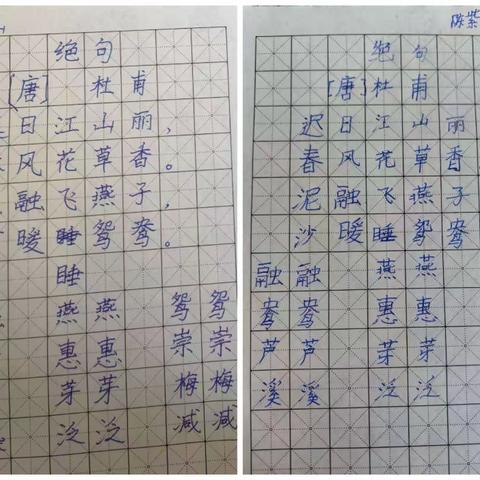 绝句
[唐] 杜甫
日江山丽，
风花草香。
融飞燕子，
暖睡鸳鸯。
睡
燕燕 鸳鸳
惠惠 崇崇
芽芽 梅梅
泛泛 减减
绝句
[唐]杜甫
迟日江山丽
春风花草香
泥融飞燕子
沙暖睡鸳鸯
融融 燕燕
鸯鸯 惠惠
芦芦 芽芽
溪溪 泛泛
陈紫